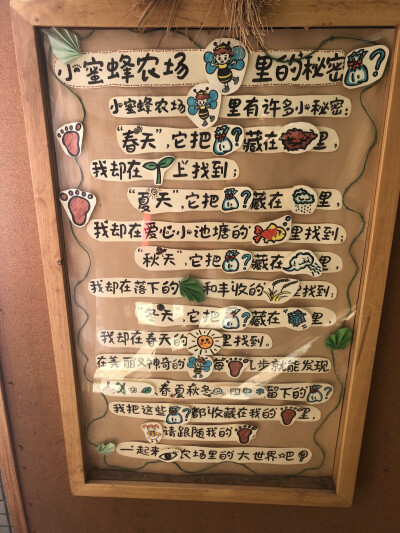 小蜜蜂农场里的秘密?
小蜜蜂农场里有许多小秘密:
"春天",它把?藏在里,
我却在上找到;
"夏天",它把?藏在里,
我却在爱心小池塘的里找到;
"秋天",它把?藏在里,
我却在落下的和丰收的里找到;
"冬天",它把?藏在里,
我却在春天的里找到.
在美丽又神奇的每几步就能发现
春夏秋冬留下的?
我把这些?都收藏在我的里,
请跟随我的
一起来农场里的大世界吧!